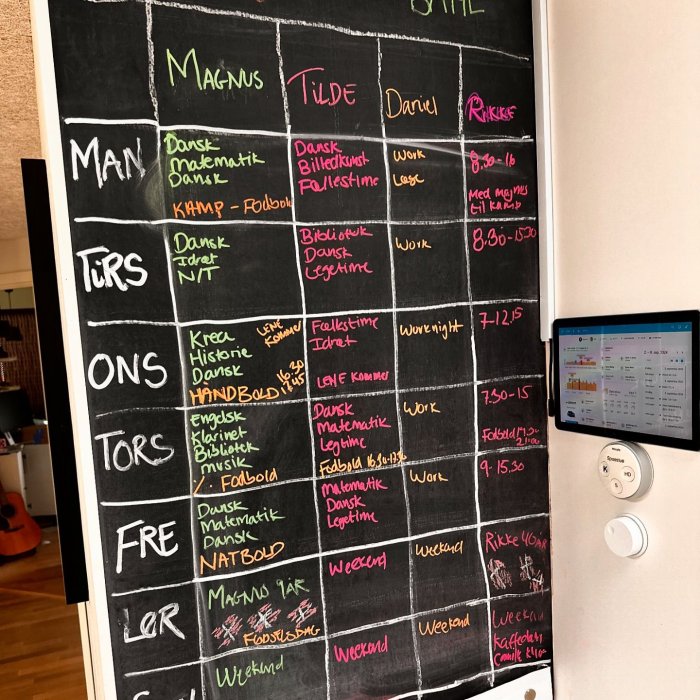 MAGNUS TILDE Daniel RIKKKE
MAN
Dansk
Matematik
Dansk
KAMP - Fodbold
Dansk
Billedkunst
Fællestime
Work
Læse
8.30-16
Med magnus
til kamp
TIRS
Dansk
Idræt
N/T
Bibliotek
Dansk
Legetime
Work
8.30-15.30
ONS
Krea
Historie
Dansk
LENE
Kommer
HÅNDBOLD 16.30
17.45
Fælkstime
Idræt
LENE Kommer
Work night
7-12.15
TORS
Engelsk
Klarinet
Bibliotek
musik
./. Fodbold
Dansk
Matematik
Legtime
Fodbold
Work
7.30-15
Fodbold
FRE
Dansk
Matematik
Dansk
NATBOLD
Matematik
Dansk
Legetime
Work
9-15.30
LØR
MAGNUS 9ÅR
FØDSELSDAG
Weekend
Weekend
Rikke 40
Weekend
Weekend
Weekend
Weekend